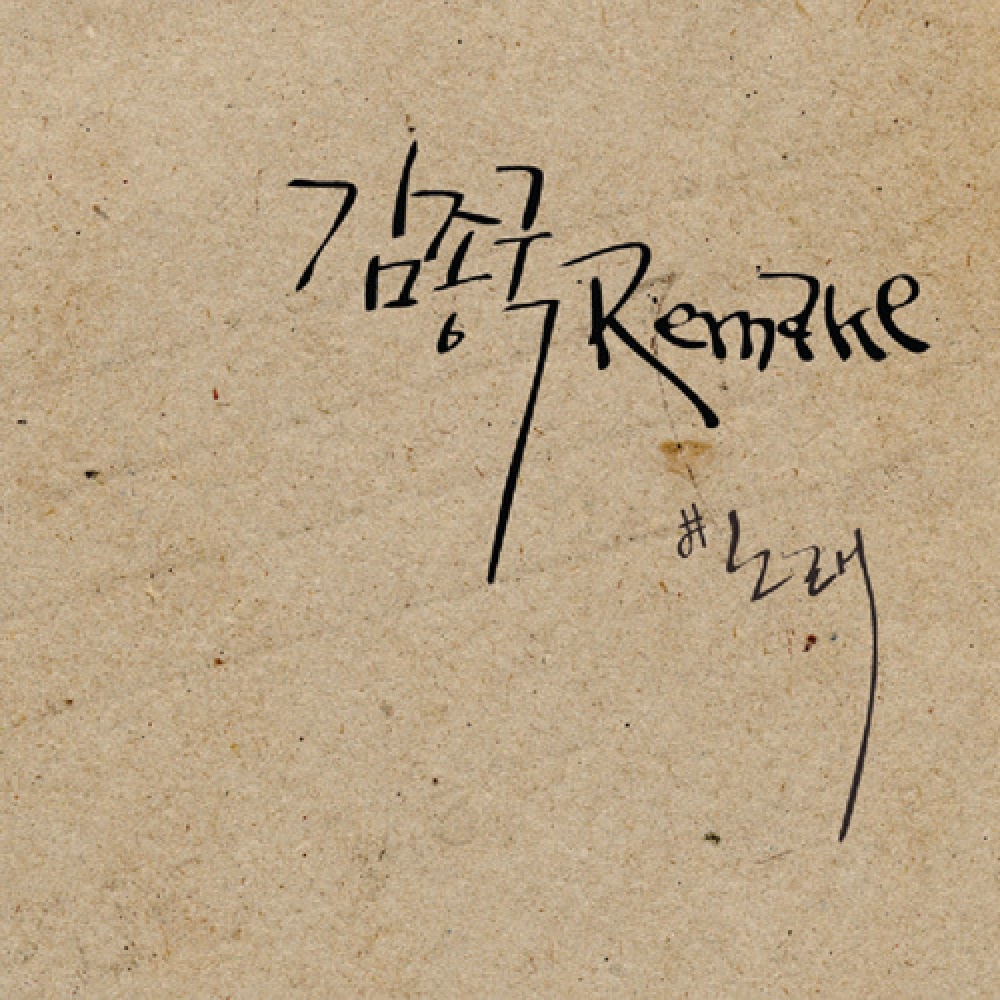 김종국 Remake
#노래